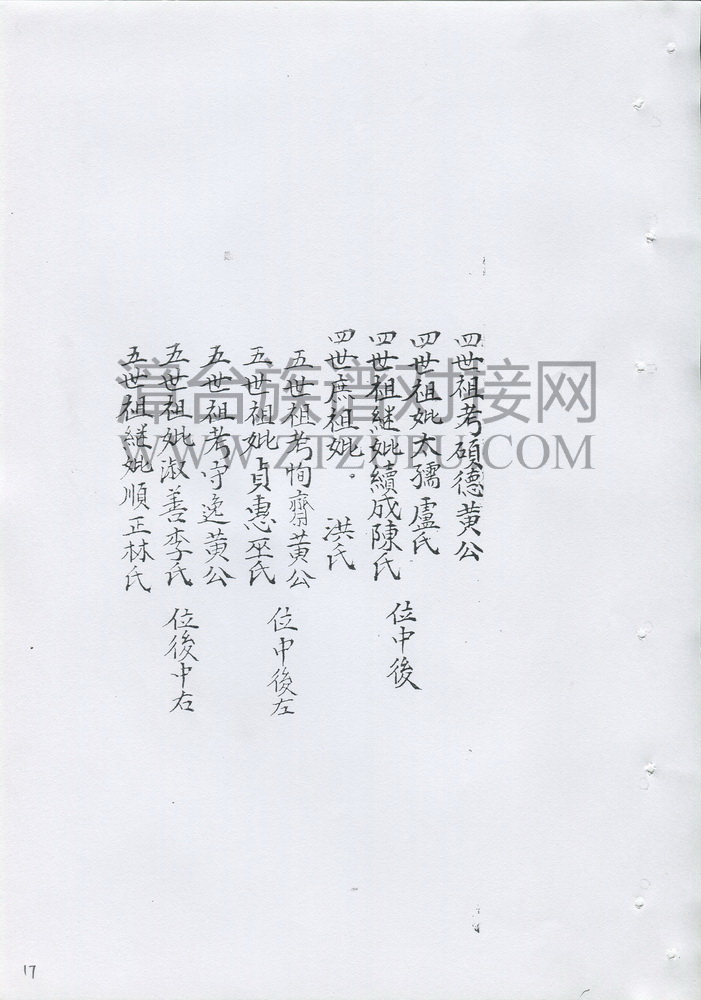 四世祖考碩德黃公
四世祖妣太孺盧氏
四世祖継妣續成陳氏
四世庶祖妣。洪氏
位中後
五世祖考恂齋黃公
五世祖妣貞惠巫氏
位中後左
五世祖考守逸黃公
五世祖妣淑善李氏
五世祖継妣順正林氏
位後中右
漳台族谱对接网
WWW.ZTZUPU.COM
17